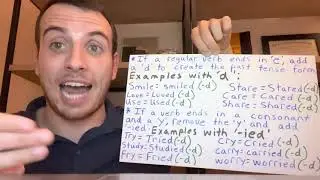 * If a regular verb ends in 'e', add
a 'd' to create the past tense form.
Examples with 'd':
Smile = Smiled (-d) Stare = Stared (-d)
Love = Loved (-d) Care = Cared (-d)
Use = Used (-d) Share = Shared (-d)
* If a verb ends in a consonant
and a 'y', remove the 'y' and add
-ied. Examples with '-ied'
Try = Tried (-d) Cry = Cried (-d)
Study = Studied (-d) carry = carried (-d)
Fry = Fried (-d) worry = worried (-d)